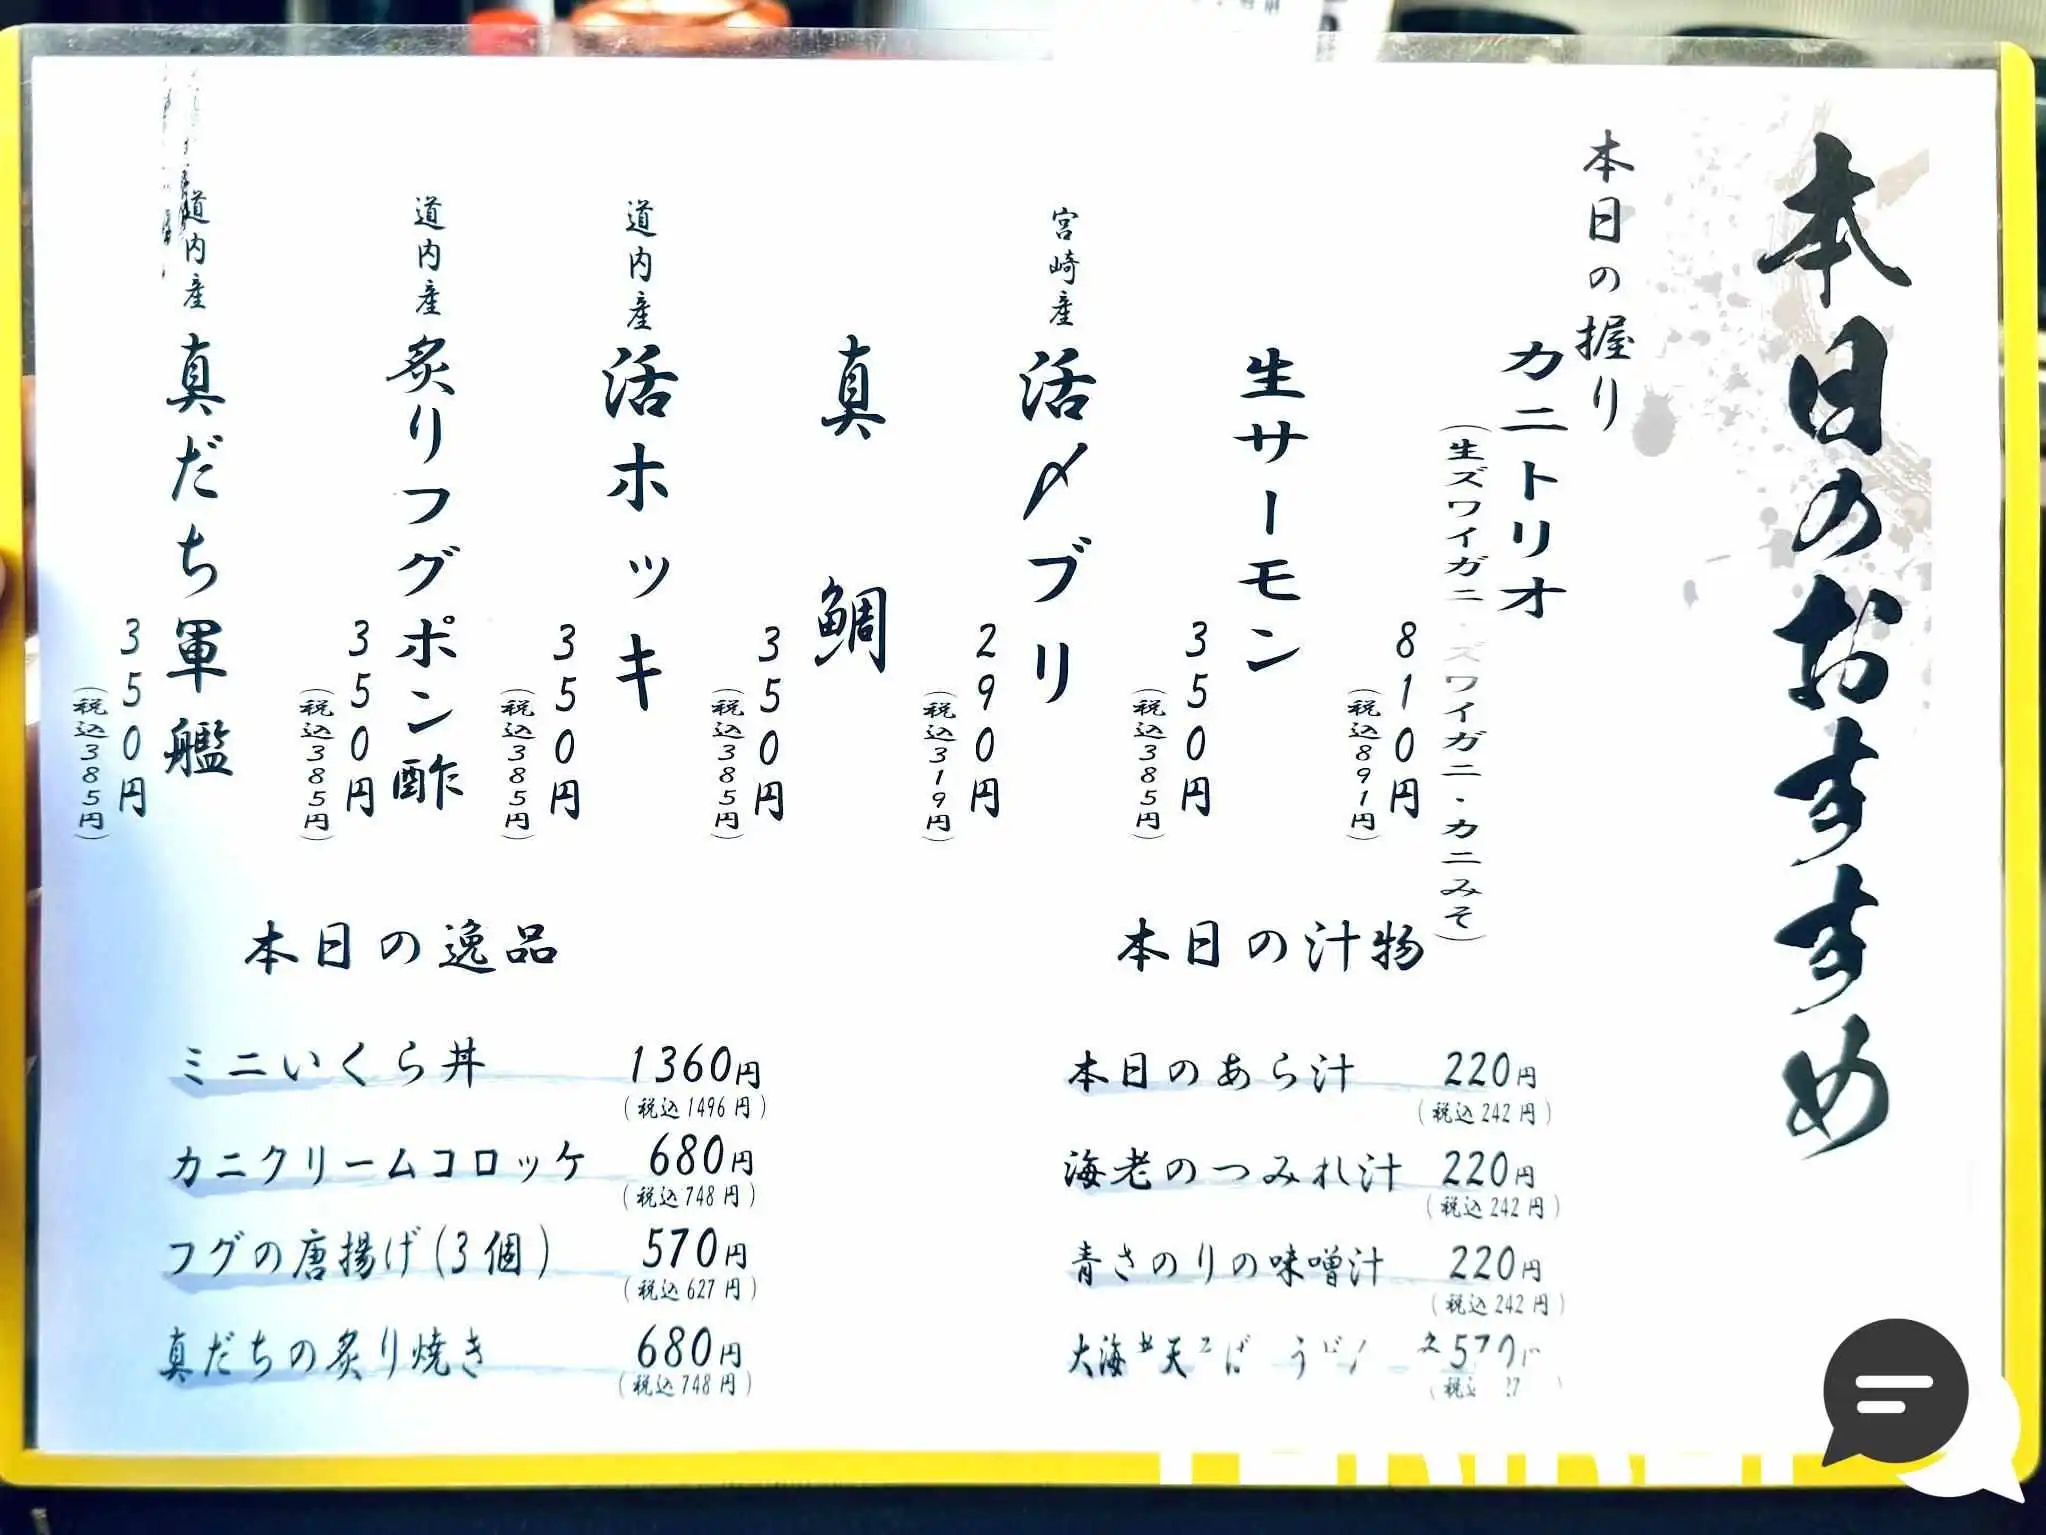 本日のおすすめ
本日の握り
カニトリオ
(生ズワイガニ・ズワイガニ・カニみそ)
810円
(税込891円)
生サーモン
350円
(税込385円)
宮崎産
活〆ブリ
290円
(税込319円)
真鯛
350円
(税込385円)
道内産
活ホッキ
350円
(税込385円)
道内産
炙りフグポン酢
350円
(税込385円)
道内産
真だち軍艦
350円
(税込385円)
本日の汁物
本日のあら汁 220円
(税込242円)
海老のつみれ汁 220円
(税込242円)
青さのりの味噌汁 220円
(税込242円)
本日の逸品
ミニいくら丼 1360円
(税込1496円)
カニクリームコロッケ 680円
(税込748円)
フグの唐揚げ(3個) 570円
(税込627円)
真だちの炙り焼き 680円
(税込748円)